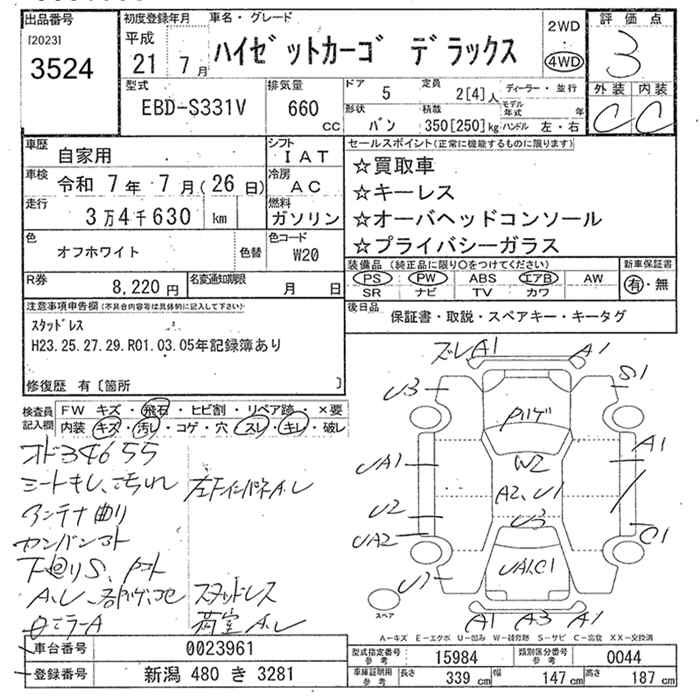 出品番号
[2023]
3524
初度登録年月
平成
21 7月
車名・グレード
ハイゼットカーゴ デラックス
2WD
・
4WD
評価点
3
外装 内装
C C
型式
EBD-S331V
排気量
660 CC
ドア 5
定員 2[4]人
形状 バン
積載 350[250]kg
ディーラー・並行
モデル年式 年
ハンドル 左・右
車歴
自家用
シフト
IAT
車検
令和 7年 7月(26日)
冷房
AC
走行
3万4千630 km
燃料
ガソリン
色
オフホワイト
色替
色コード
W20
R券
8,220円
名変通知期限
月 日
セールスポイント(正常に機能するものに限ります)
☆買取車
☆キーレス
☆オーバヘッドコンソール
☆プライバシーガラス
装備品 (純正品に限り○をつけてください)
PS PW ABS エアB AW
SR ナビ TV カワ
新車保証書
有・無
後日品
保証書・取説・スペアキー・キータグ
注意事項申告欄(不具合内容等は具体的に記入して下さい)
スタッドレス
H23.25.27.29.R01.03.05年記録簿あり
修復歴 有〔箇所 〕
検査員記入欄
FW キズ・飛石・ヒビ割・リペア跡・×要
内装 キズ・汚レ・コゲ・穴・スレ・キレ・破レ
オド34655
アンテナ曲り
スタッドレス
荷室A.レ
A1
A1
U3
S1
W2
UA1
A1
A2、U1
U2
U3
UA2
C1
UA1C1
スペア
A1 A3 A1
A-キズ E-エクボ U-凹み W-補修跡 S-サビ C-腐食 XX-交換済
車台番号
0023961
登録番号
新潟 480 き 3281
型式指定番号参考
15984
類別区分番号参考
0044
車庫証明用参考
長さ 339 cm
幅 147 cm
高さ 187 cm